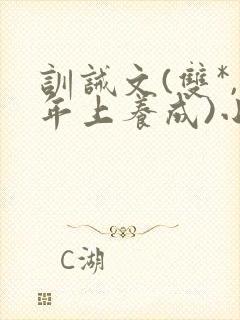 訓誡文(雙*,
年上養成)小
C湖